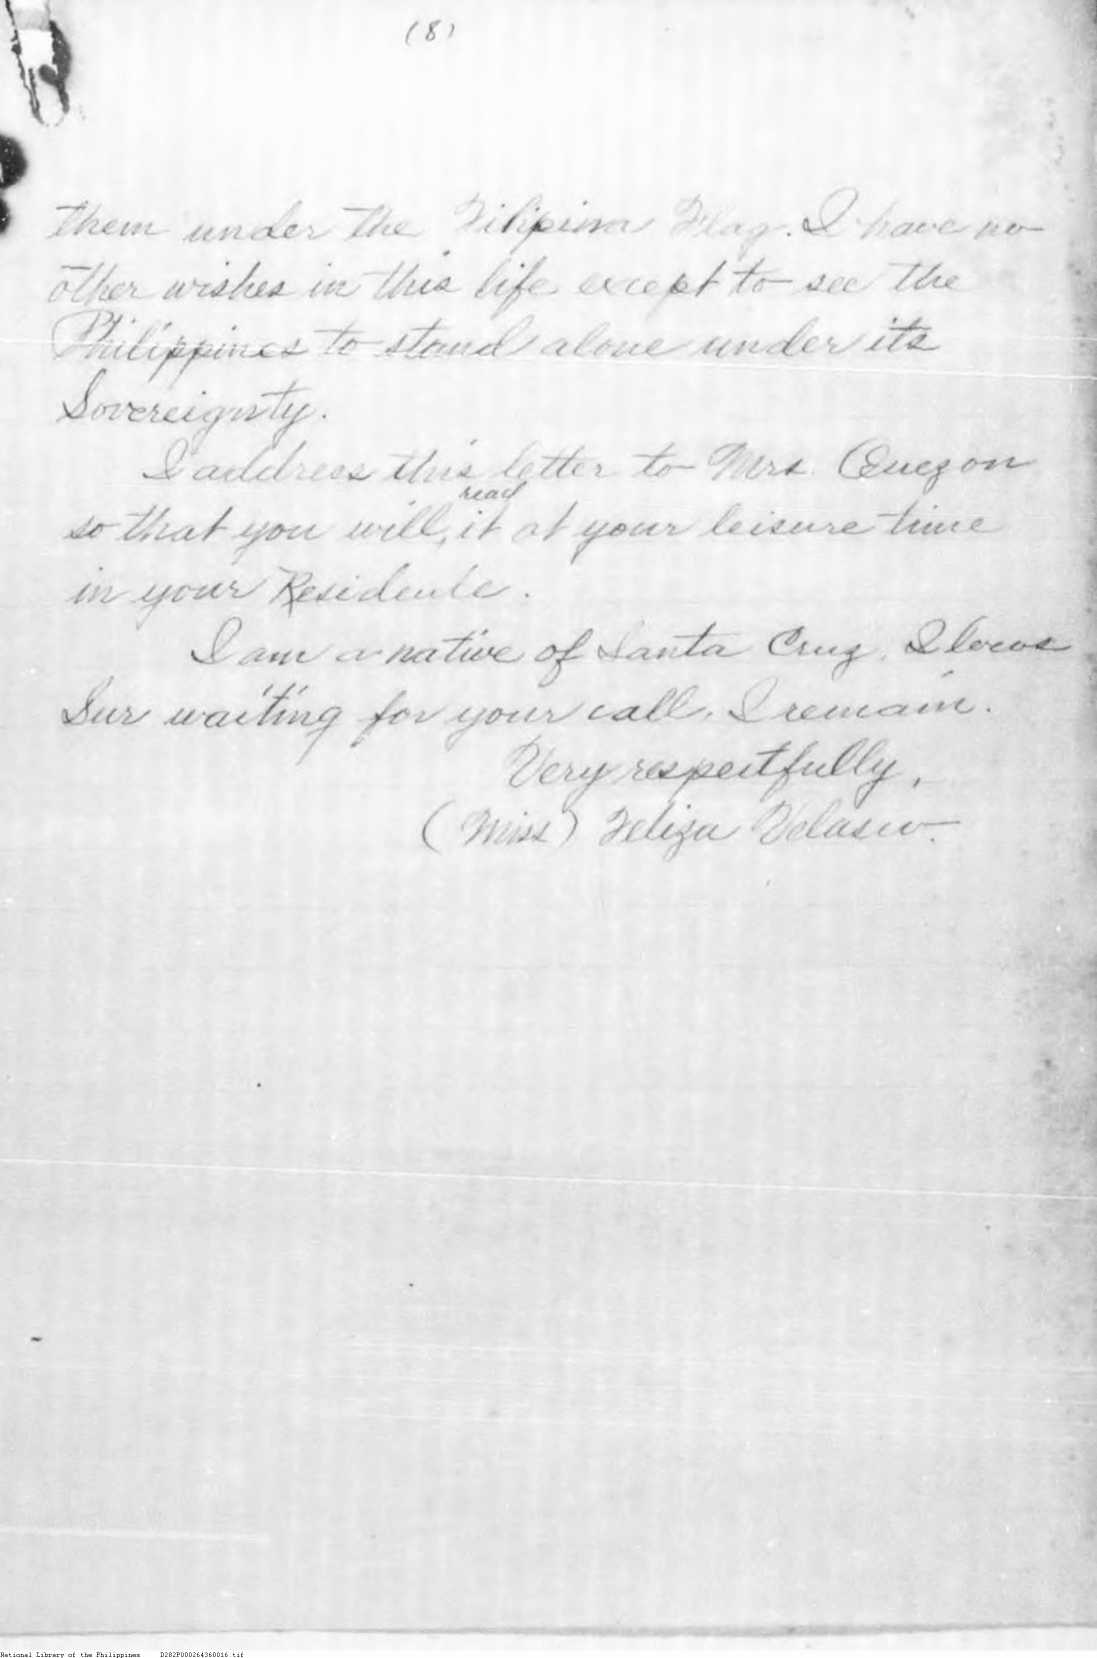 (8)
them under the Filipina Flag. I have no
other wishes in this life except to see the
Philippines to stand alone under its
Sovereignty.
I address this letter to Mrs. Quezon
so that you will, read it at your leisure time
in your Residence.
I am a native of Santa Cruz, Ilocos
Sur waiting for your call. I remain.
Very respectfully,
(Miss) Feliza Velasco.
National Library of the Philippines D282P000264360016.tif